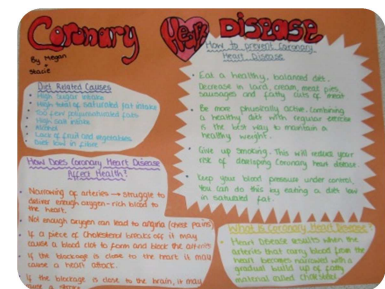 Coronary Heart Disease
By Megan
+
Stacie
Diet Related Causes
High sugar intake
High level of saturated fat intake
Too few polyunsaturated fats
High salt intake
Lack of fruit and vegetables
Diet low in fibre
How Does Coronary Heart Disease
Affect Health?
Narrowing of arteries → struggle to
deliver enough oxygen-rich blood to
the heart.
Not enough oxygen can lead to angina (chest pains)
If a piece of cholesterol breaks off it may
cause a blood clot to form and block the arteries
If the blockage is close to the heart it may
cause a heart attack.
If the blockage is close to the brain, it may
How to prevent Coronary
Heart Disease
Eat a healthy, balanced diet.
Decrease in lard, cream, meat pies,
sausages and fatty cuts of meat
Be more physically active. Combining
a healthy diet with regular exercise
is the best way to maintain a
healthy weight.
Give up smoking. This will reduce your
risk of developing Coronary heart disease
Keep your blood pressure under control.
You can do this by eating a diet low
in saturated fat.
What is Coronary Heart Disease?
Heart Disease results when the
arteries that carry blood from the
heart becomes narrowed with a
gradual build up of fatty
material called cholesterol